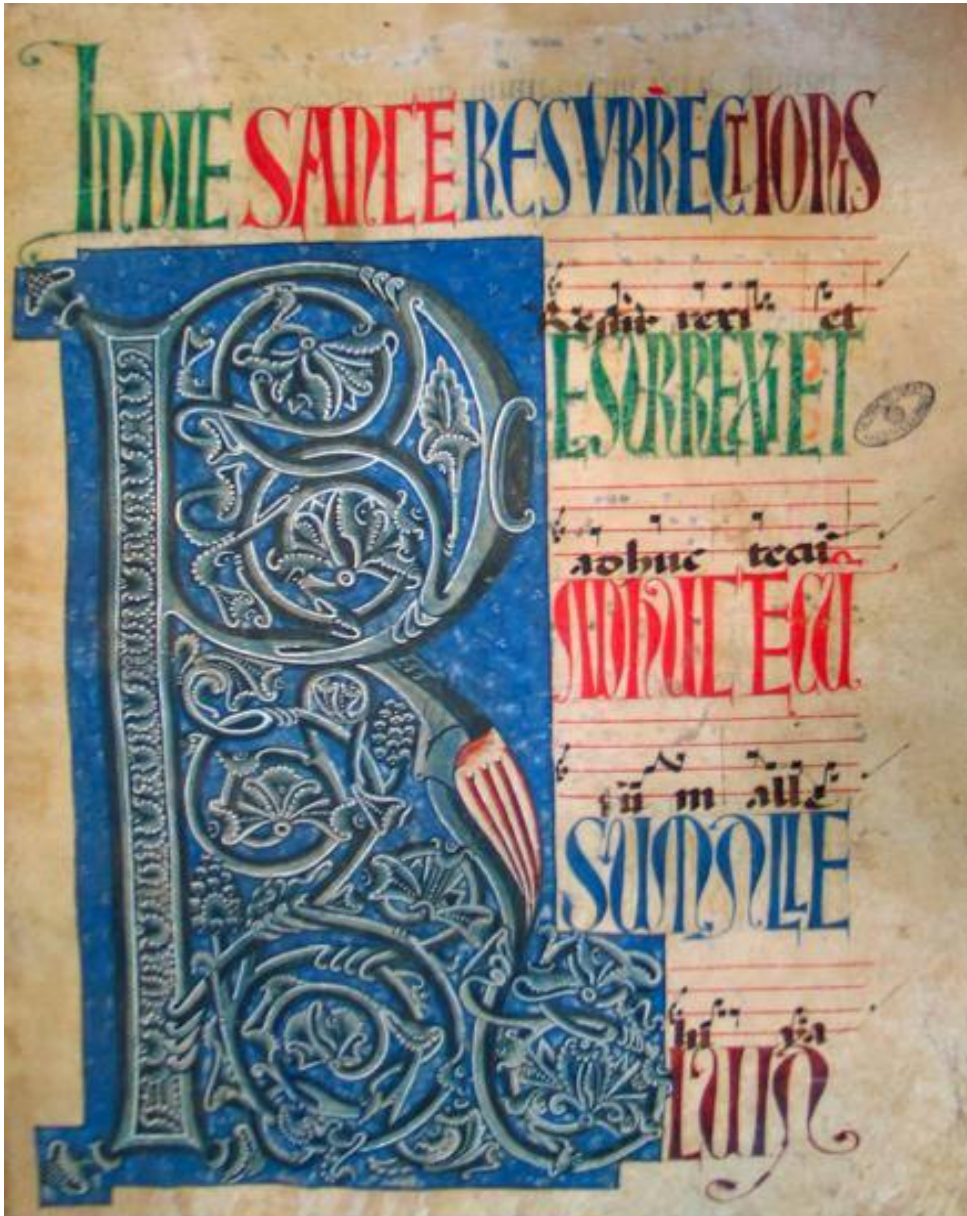 IN DIE SANCTE RESURRECTIONIS
Resur rexi et
RESURREXI ET
adhuc tecu
ADHUC TECU
su m alle
SUM ALLE
lu ya
LUIA